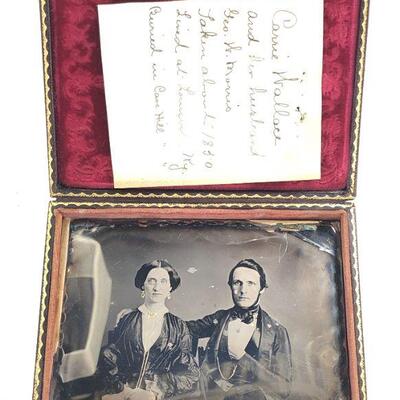 Carrie Wallace
and her husband
Geo. W. Morris
Taken about 1850
Lived at Ky.
Buried in Cave Hill " "